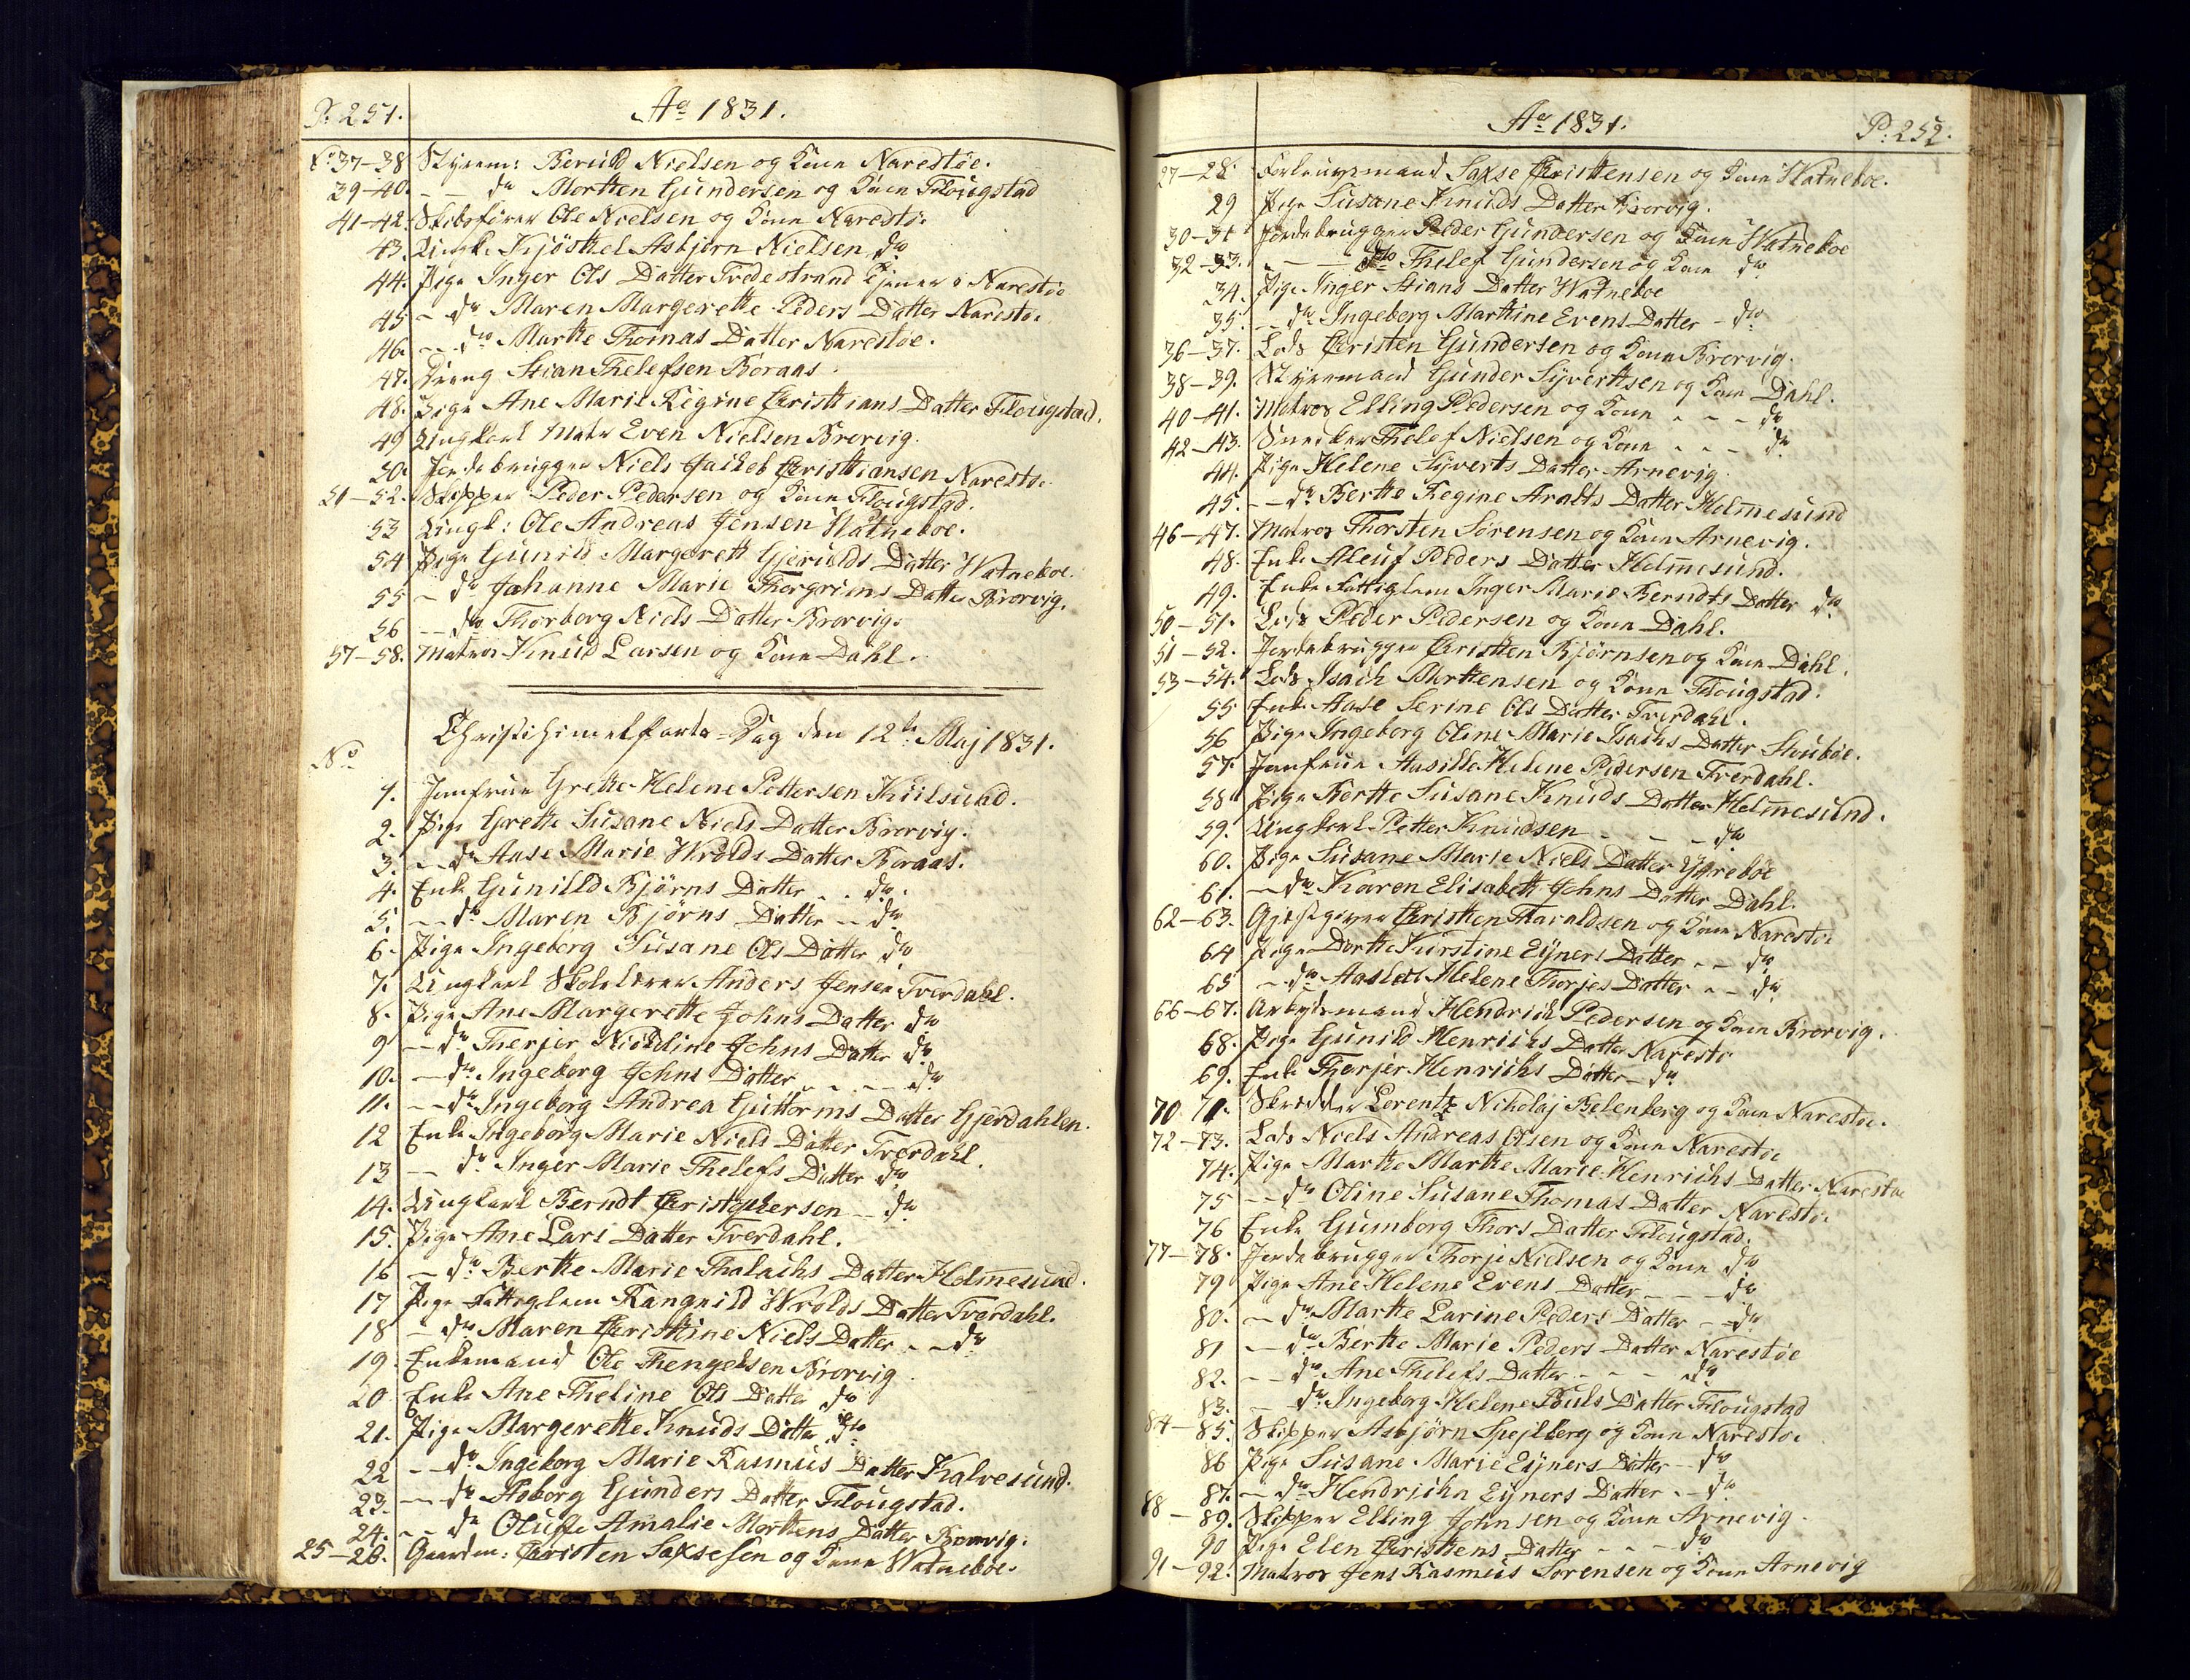 P. 251.
Aº 1831.
Nº 37-38 Styrm: Beruld Nielsen og Kone Narestöe.
39-40. - - dº Mortten Gundersen og Kone Flougstad
41-42. Skibsförer Ole Nielsen og Kone Narestöe
43. Ungk: Kjöstkel Asbjörn Nielsen dº
44. Pige Inger Ols Datter Fredestrand tjener i Narestöe
45 - dº Maren Margerethe Peders Datter Narestöe
46. - - dº Marthe Thomas Datter Narestöe.
47. Dreng Stian Thelefsen Boraas.
48. Pige Ane Marie Regine Christians Datter Flougstad.
49 Ungkarl Matr Even Nielsen Brorvig.
50. Jordebrugger Niels Jacheb Christiansen Narestöe
51-52. Skipper Peder Pedersen og Kone Flougstad.
53 Ungk: Ole Andreas Jensen Watneboe.
54 Pige Gunild Margereth Gjerulds Datter Watneboe.
55 - dº Johanne Marie Thorgrims Datter Brorvig.
56 - - dº Thorborg Niels Datter Brorvig.
57-58. Matros Knud Larsen og Kone Dahl.
Christi himelfarts-Dag den 12te Maj 1831.
Nº
1. Jomfrue Grethe Helene Pettersen Kiilsund.
2. Pige Grethe Susane Niels Datter Brorvig.
3. - - dº Aase Marie Wrolds Datter Boraas.
4. Enke Gunilld Björns Datter - - dº.
5. - - dº Maren Bjørns Datter - - dº
6. Pige Ingeborg Susane Ols Datter dº
7. Ungkarl Skolelærer Anders Jensen Tverdahl.
8. Pige Ane Margerethe Johns Datter dº
9 - dº Therjer Nicoline Johns Datter dº
10. - dº Ingeborg Johns Datter - - - dº
11. - - dº Ingeborg Andrea Guttorms Datter Gjerdahlen.
12 Enke Ingeborg Marie Niels Datter Tverdahl.
13 - dº Inger Marie Thelefs Datter dº
14. Ungkarl Berndt Christophersen - dº
15. Pige Ane Lars Datter Tverdahl.
16 - dº Berthe Marie Thalachs Datter Holmesund.
17 Pige Fattiglem Rangnild Wrolds Datter Tverdahl.
18 - dº Maren Christine Niels Datter - - dº
19. Enkemand Ole Thengelsen Brorvig.
20 Enke Ane Theline Ols Datter dº
21. Pige Margerethe Knuds Datter dº
22 - - dº Ingeborg Marie Rasmus Datter Kalvesund.
23. - - dº Adborg Gunders Datter Flougstad.
24. - - dº Oluffe Amalie Morttens Datter Brorvig.
25-26. Gaardm: Christen Saxsesen og Kone Watneboe.
Aº 1831.
P. 252.
27-28. Forlougsmand Saxse Christensen og Kone Watneboe.
29 Pige Susane Knuds Datter Brorvig.
30-31 Jordebrugger Peder Gundersen og Kone Watneboe
32-33. - - - dº Thelef Gundersen og Kone dº
34. Pige Inger Stians Datter Watneboe
35. - - dº Ingeborg Marthine Evens Datter - dº
36-37. Lods Christen Gundersen og Kone Brorvig.
38-39. Styrmand Gunder Syvertsen og Kone Dahl.
40-41. Matros Elling Pedersen og Kone - - - dº
42-43. Snedker Thelef Nielsen og Kone - - - dº
44. Pige Helene Syverts Datter Arnevig
45. - - dº Berthe Regine Aralts Datter Holmesund
46-47. Matros Thorsten Sörensen og Kone Arnevig.
48. Enke Aleuf Peders Datter Holmesund.
49. Enke Fattiglem Inger Marie Berndts Datter dº
50-51. Lods Peder Pedersen og Kone Dahl.
51-52. Jordebrugger Christen Bjørnsen og Kone Dahl.
53-54. Lods Isach Morttensen og Kone Flougstad.
55 Enke Aase Serine Ols Datter Tverdahl.
56 Pige Ingeborg Oline Marie Isachs Datter Skouboe.
57. Jomfrue Aasille Helene Pedersen Tverdahl.
58 Pige Berthe Susane Knuds Datter Holmesund.
59. Ungkarl Petter Knudsen - - - dº
60. Pige Susane Marie Niels Datter Ygreboe
61. - dº Karen Elisabeth Johns Datter Dahl.
62-63. Gjestgiver Christen Haraldsen og Kone Narestöe
64 Pige Dorthe Kirstine Eyners Datter - - dº
65 - dº Aasled Helene Thorjes Datter - - dº
66-67. Arbeydsmand Hendrich Pedersen og Kone Brorvig.
68. Pige Gunild Henrichs Datter Narestöe
69. Enke Therjer Henrichs Datter - dº
70 71. Skredder Lerentz Nicholaj Belenberg og Kone Narestöe.
72-73. Lods Niels Andreas Olsen og Kone Narestöe
74. Pige Marthe Marthe Marie Henrichs Datter Narestöe
75 - - dº Oline Susane Thomas Datter Narestöe
76 Enke Gumborg Thors Datter Flougstad.
77-78. Jordebrugger Thorje Nielsen og Kone dº
79 Pige Ane Helene Evens Datter - - - dº
80. - dº Marthe Larine Peders Datter - dº
81 - dº Berthe Marie Peders Datter Narestöe
82. - - dº Ane Thelefs Datter - - - dº
83. - dº Ingeborg Helene Pouls Datter Flougstad
84-85. Skipper Asbjørn Spejlberg og Kone Narestöe
86 Pige Susane Marie Eyners Datter - dº
87. - dº Hendricha Eyners Datter - - dº
88-89. Skipper Elling Johnsen og Kone Arnevig.
90 Pige Elen Christens Datter - - - dº
91-92. Matros Jens Rasmus Sorensen og Kone Arnevig